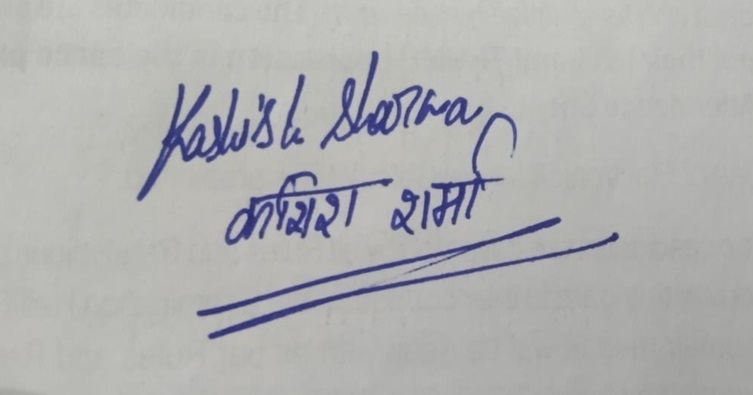 Kashish Sharma
कशिश शर्मा